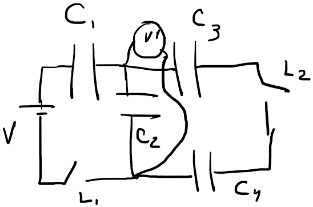 C1
V'
C3
L2
V
C2
L1
C4